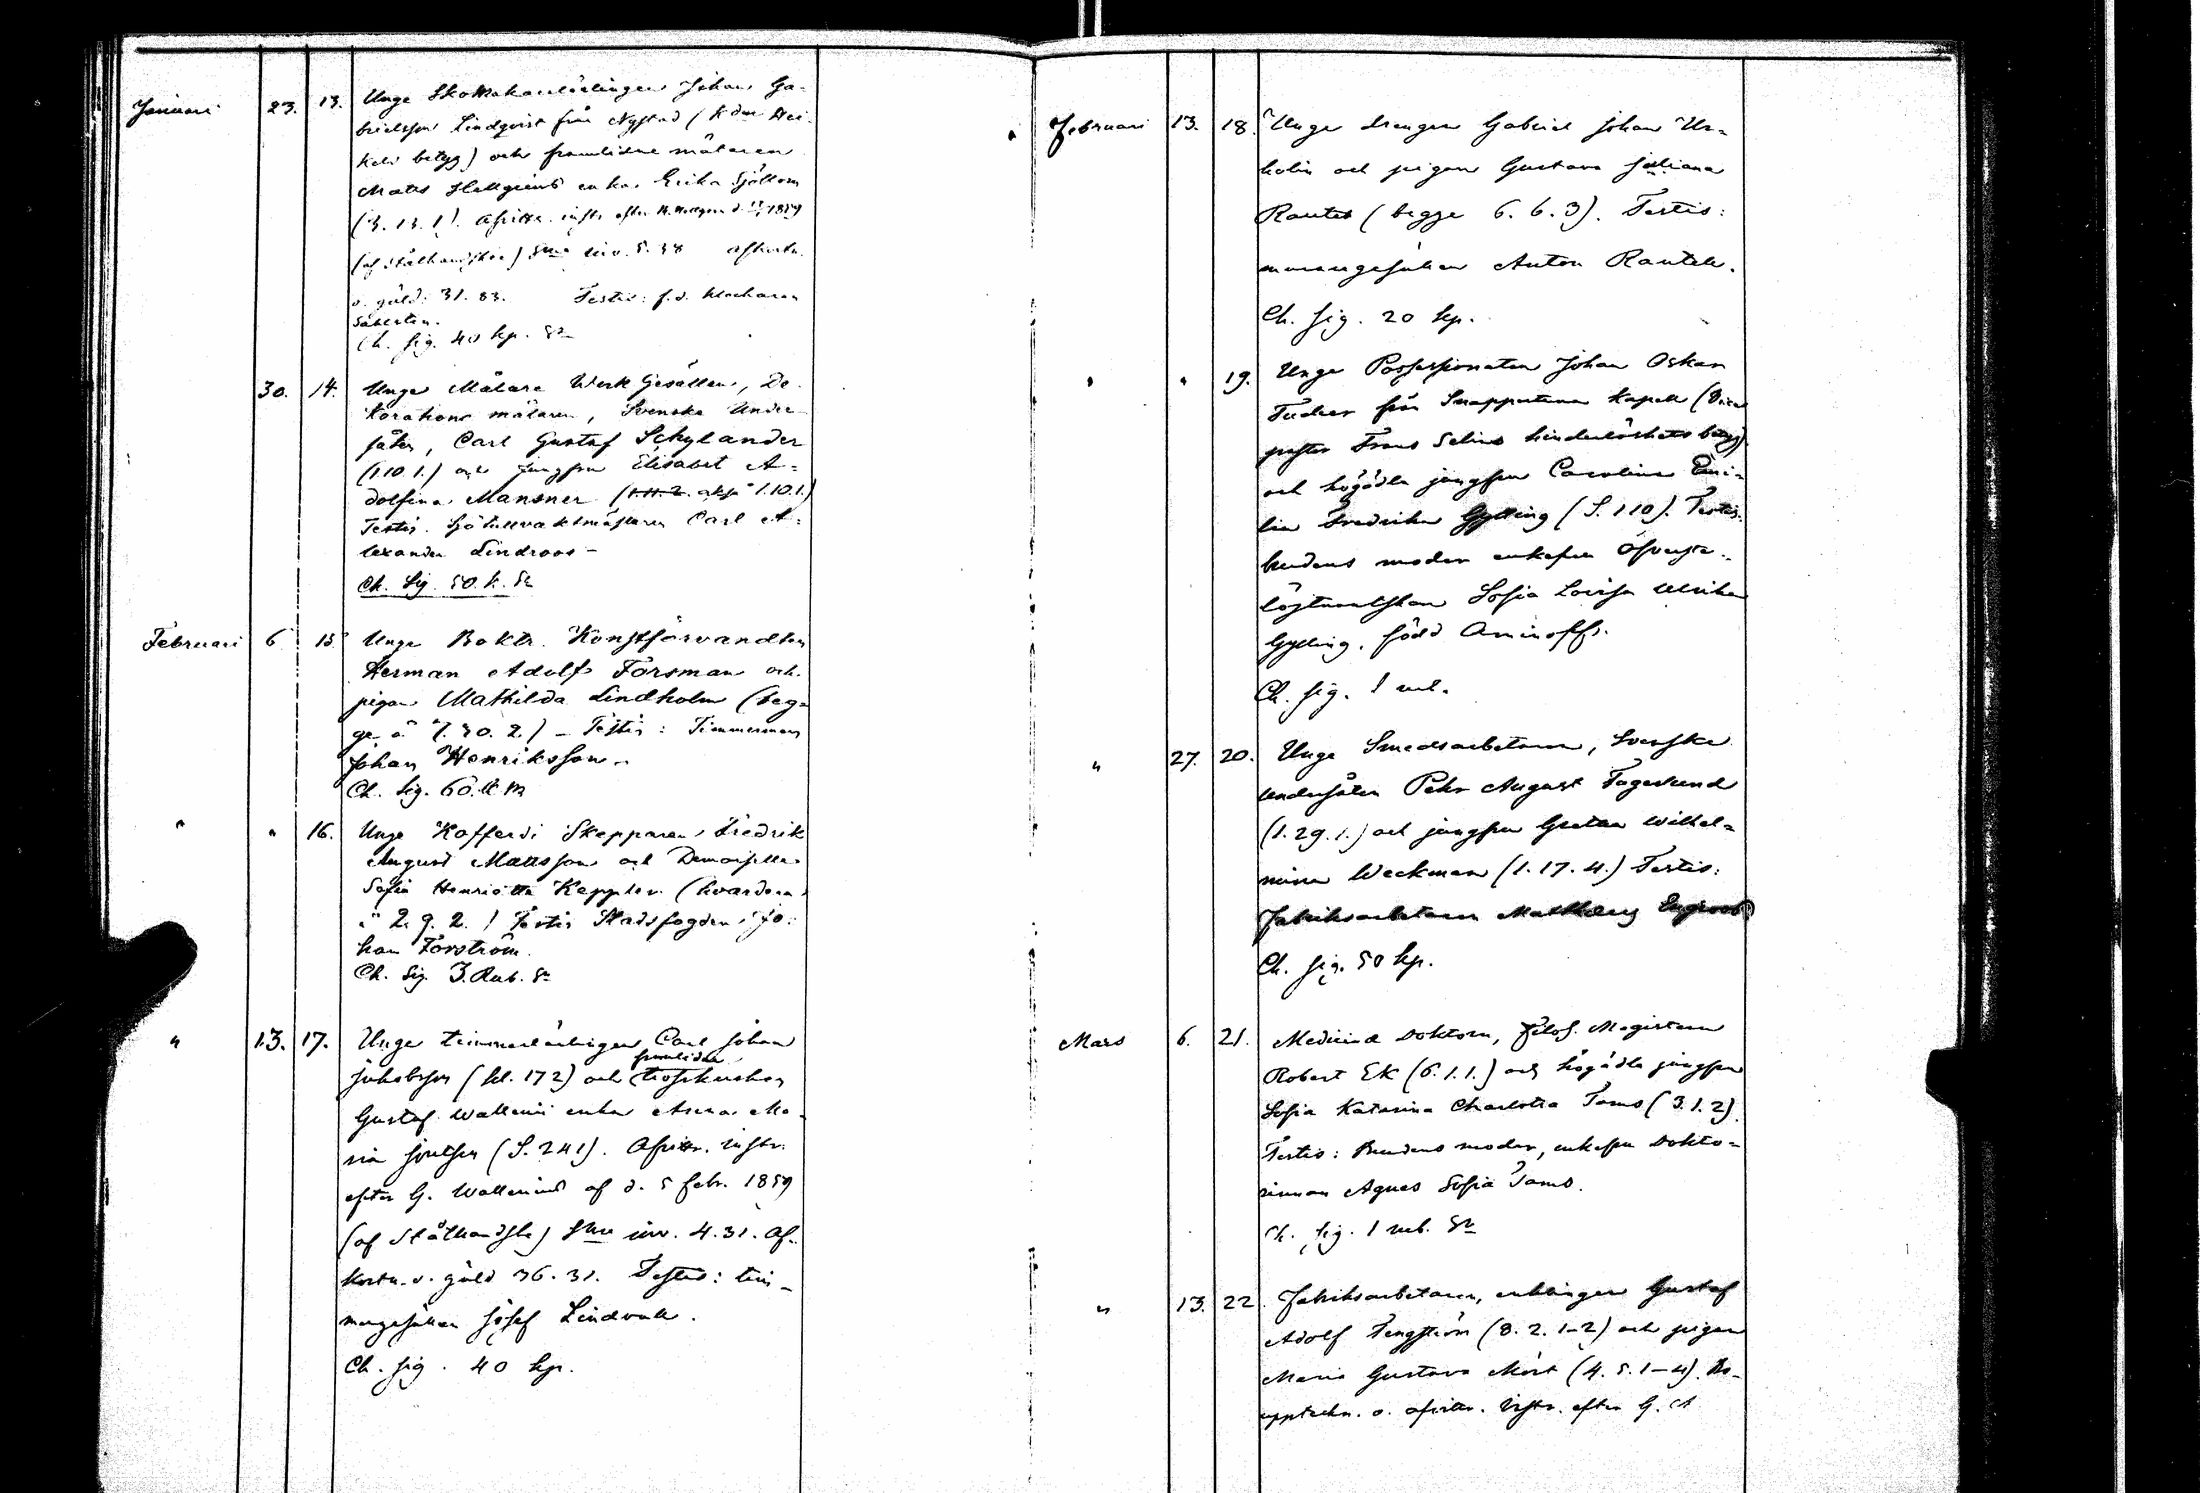 Januari 23. 13. Unge Skomakarelärlingen Johan Ga-
brielsson Lindqvist från Nystad (K. dm Hei-
kels betyg) och framlidne målaren
Matts Hellgrens enka Erika Sjöblom
(3. 13. 1). Afvittr. instr. efter M. Hellgren d. 1859
(af Stålhandske) Sma inv. 5. 38 afkortn.
o. gäld: 31. 83. Testis: f. d. klockaren
Söderström.
Ch. sig. 40 kp. Sr
30. 14. Unge Målare Werk Gesällen, De-
korations målaren, Svenske Under-
såten, Carl Gustaf Schylander
(1. 10. 1.) och jungfru Elisabet A-
dolfina Mansner (1. 11. 2. 1. 10. 1.)
Testis. Sjötullvaktmästaren Carl A-
lexander Lindroos –
Ch. Sig. 50. k. Sr
Februari 6 15 Unge Boktr. Konstförvandten
Herman Adolf Forsman och
pigan Mathilda Lindholm (beg-
ge å 7. 30. 2.) – Testis: Timmerman
Johan Henriksson –
Ch. Sig. 60. k.
" " 16. Unge Kofferdi Skepparen Fredrik
August Mattsson och Demoiselle
Sofia Henrietta Keppler (hvardera
å 2. 9. 2.) Testis Stadsfogden Jo-
han Forström.
Ch. Sig. 3. Rub. Sr
" 13. 17. Unge timmerlärlingen Carl Johan
framlidne
Jakobsson (bl. 172) och trosskusken
Gustaf Wallenii enka Anna Ma-
ria Joutsen (S. 241). Afvittr. instr.
efter G. Wallenius af d. 5 febr. 1859
(af Stålhandske) Sma inv. 4. 31. Af-
kortn. o. gäld 36. 31. Testis: tim-
mergesällen Josef Lindvall.
Ch. sig. 40 kp.
Februari 13. 18. Unge drengen Gabriel Johan Ur-
holin och pigan Gustava Juliana
Rautell (begge 6. 6. 3). Testis:
muraregesällen Anton Rautell.
Ch. sig. 20 kp.
" " 19. Unge Possessionaten Johan Oskar
från Snappertuna Kapell (Vice
pastor Frans Selins hinderlöshets betyg)
och högädla jungfru Carolina Emi-
lia Fredrika Gylling (S. 110). Testis:
brudens moder enkefru Öfverste-
löjtnantskan Sofia Lovisa Ulrika
Gylling, född Aminoff.
Ch. sig. 1 rub.
" 27. 20. Unge Smedsarbetaren, Svenske
undersåten Pehr August Fagerlund
(1. 29. 1.) och jungfru Gretha Wilhel-
mina Weckman (1. 17. 4.) Testis:
Fabriksarbetaren Matthæus Engroos
Ch. sig. 50 kp.
Mars 6. 21. Medicine Doktorn, Filos. Magistern
Robert Ek (6. 1. 1.) och högädla jungfru
Sofia Katarina Charlotta Tams (3. 1. 2).
Testis: Brudens moder, enkefru Dokto-
rinnan Agnes Sofia Tams.
Ch. sig. 1 rub. Sr
" 13. 22. Fabriksarbetaren, enklingen Gustaf
Adolf Tengström (8. 2. 1–2) och pigan
Maria Gustava Mört (4. 5. 1–4). Bo-
uppteckn. o. afvittr. Instr. efter G. A